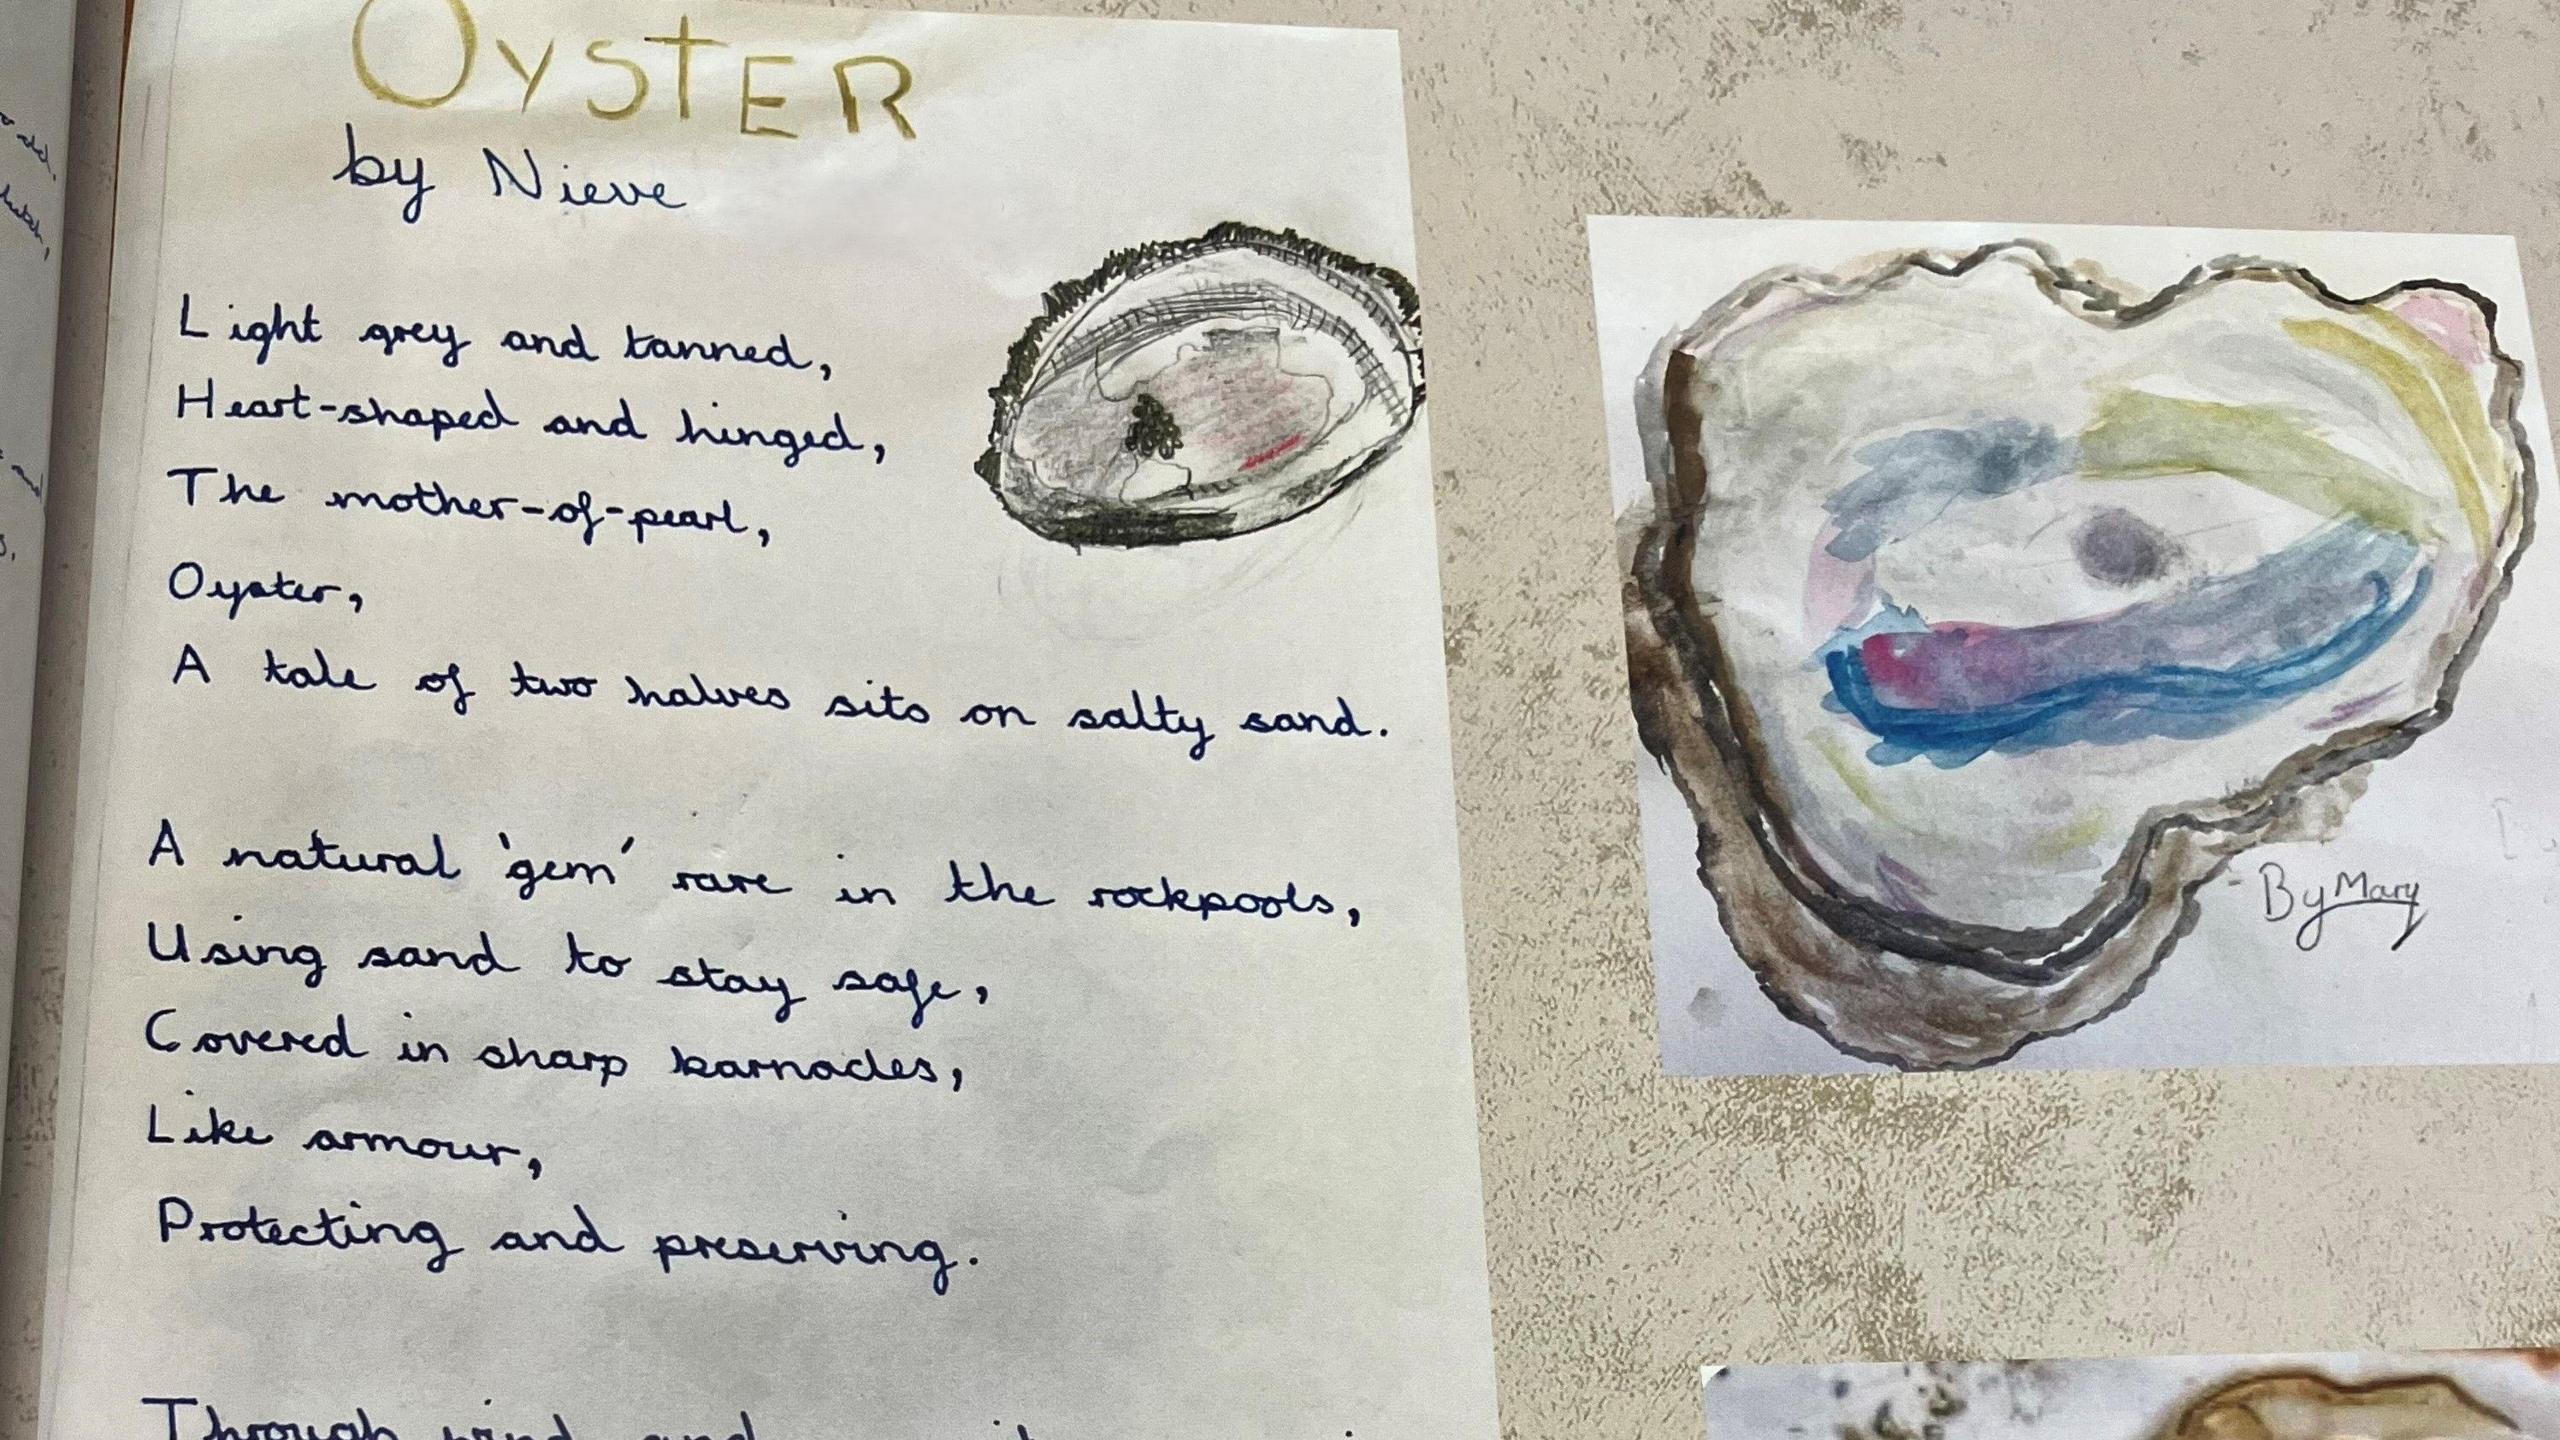 OYSTER
by Nieve
Light grey and tanned,
Heart-shaped and hinged,
The mother-of-pearl,
Oyster,
A tale of two halves sits on salty sand.
A natural 'gem' rare in the rockpools,
Using sand to stay safe,
Covered in sharp barnacles,
Like armour,
Protecting and preserving.
Through wind and
- By Mary
and